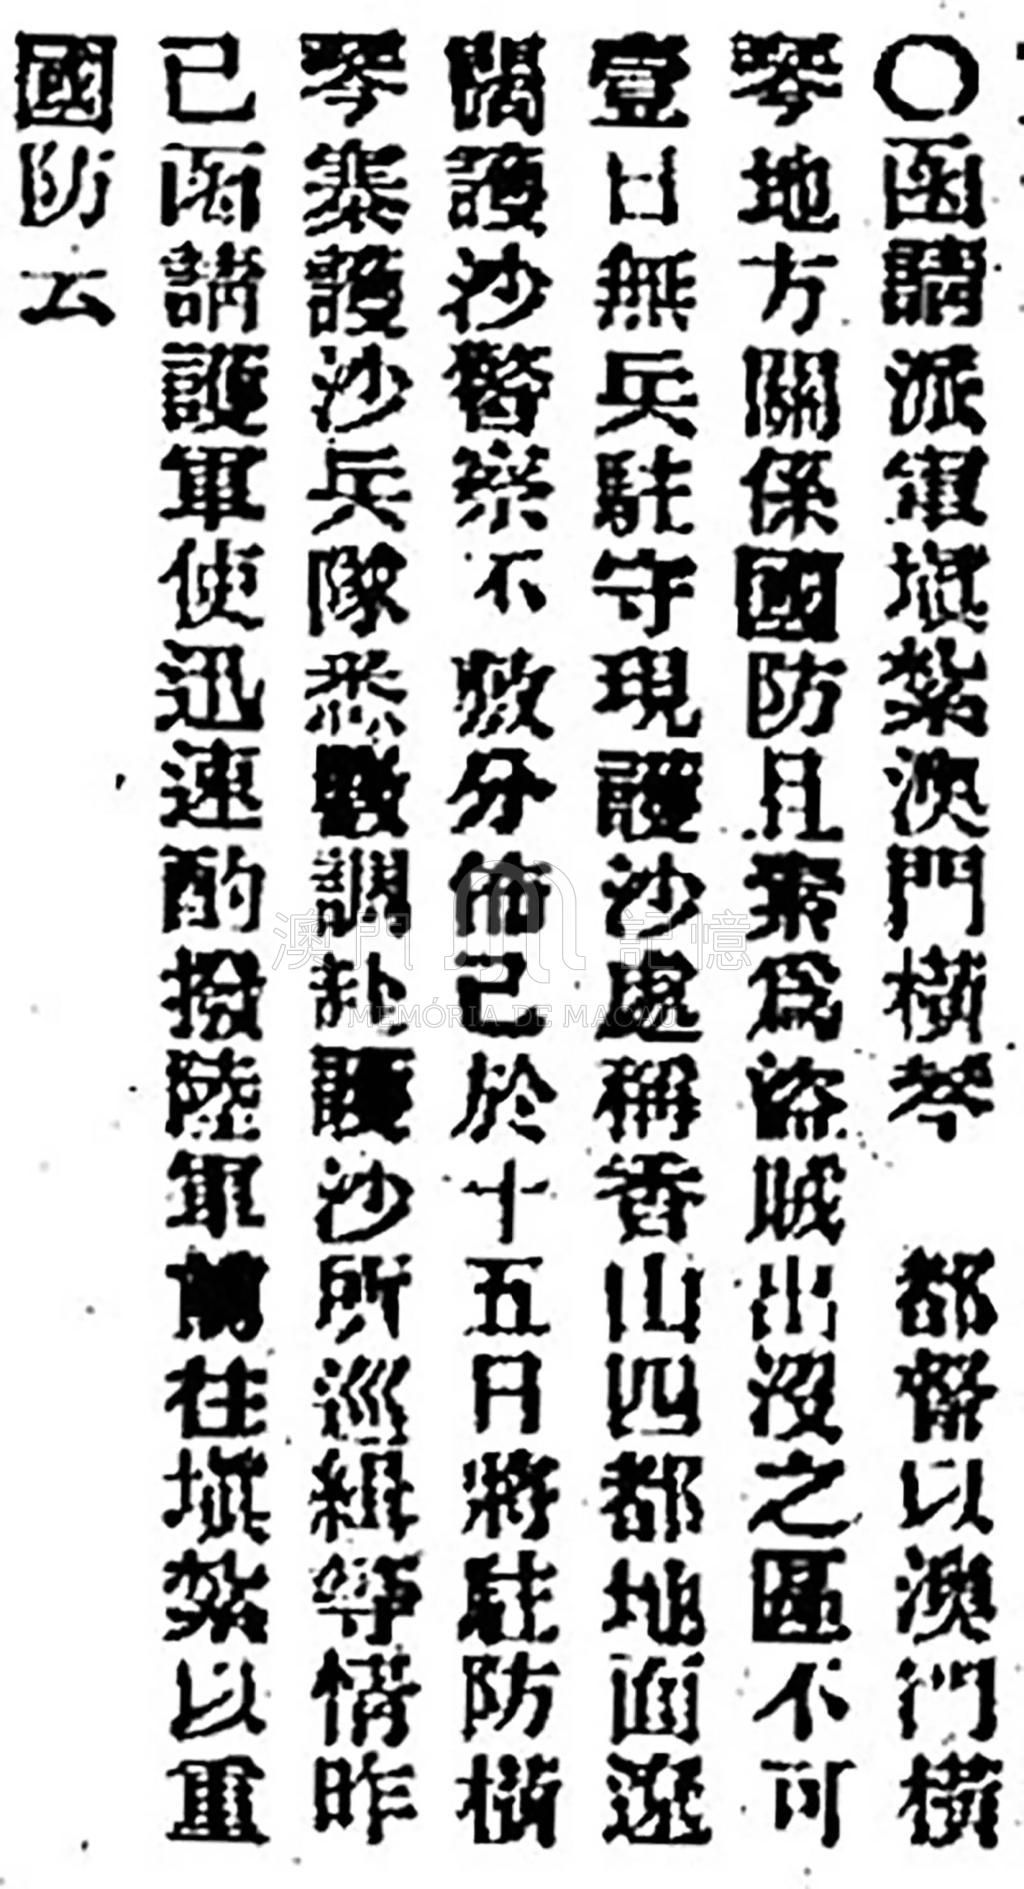 ○函請派軍塡紮澳門橫琴　都督以澳門橫
琴地方關係國防且聚爲盜賊出沒之區不可
壹日無兵駐守現護沙處稱香山四都地面遼
闊護沙營察不敷分佈已於十五日將駐防橫
琴寨護沙兵隊悉數調赴護沙所巡緝等情昨
已函請護軍使迅速酌撥陸軍前往塡紮以重
國防云
澳門記憶
MEMÓRIA DE MACAU